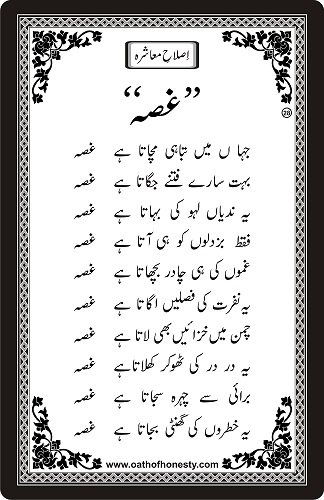 اِصلاحِ معاشرہ
”غصہ“
28
جہاں میں تباہی مچاتا ہے غصہ
بہت سارے فتنے جگاتا ہے غصہ
یہ ندیاں لہو کی بہاتا ہے غصہ
فقط بزدلوں کو ہی آتا ہے غصہ
غموں کی ہی چادر بچھاتا ہے غصہ
یہ نفرت کی فصلیں اگاتا ہے غصہ
چمن میں خزائیں بھی لاتا ہے غصہ
یہ در در کی ٹھوکر کھلاتا ہے غصہ
برائی سے چہرہ سجاتا ہے غصہ
یہ خطروں کی گھنٹی بجاتا ہے غصہ
www.oathofhonesty.com